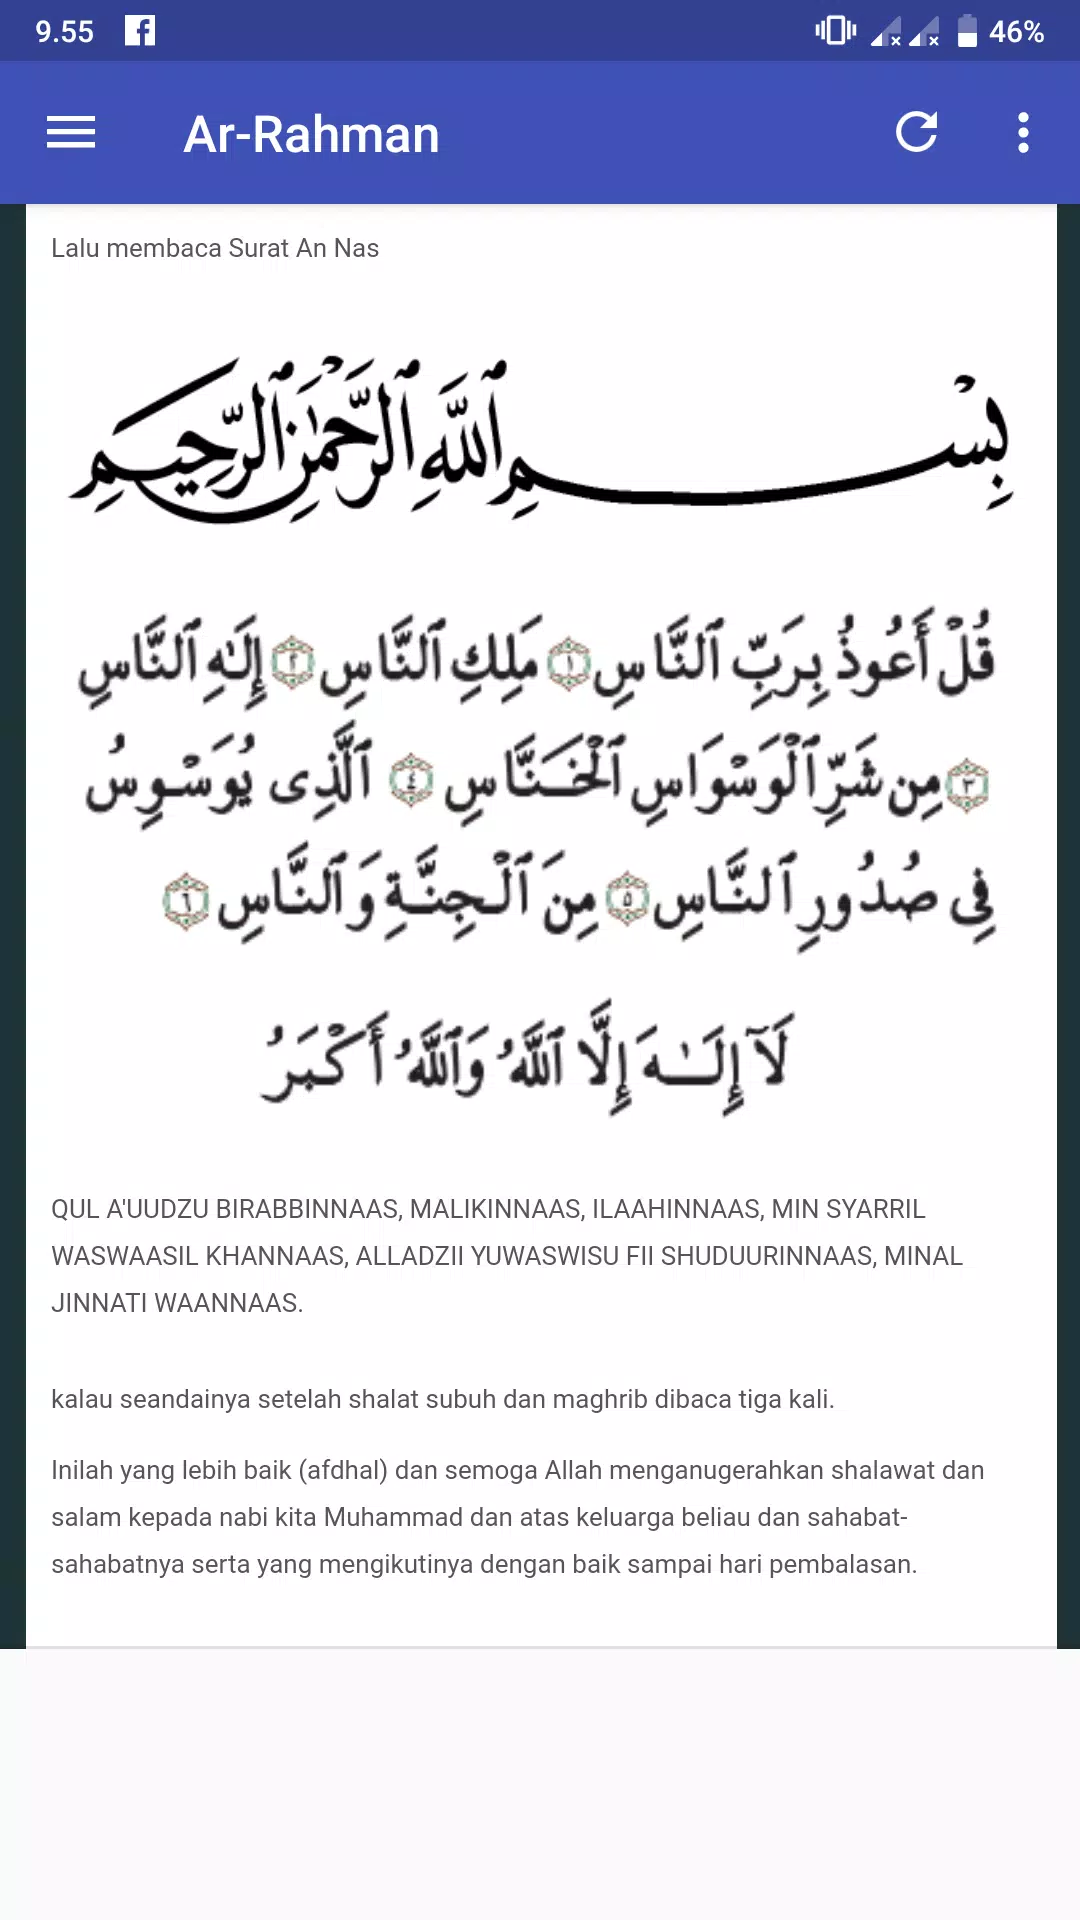 9.55
46%
Ar-Rahman
Lalu membaca Surat An Nas
بِسْمِ ٱللَّهِ ٱلرَّحْمَٰنِ ٱلرَّحِيمِ
قُلْ أَعُوذُ بِرَبِّ ٱلنَّاسِ ١ مَلِكِ ٱلنَّاسِ ٢ إِلَٰهِ ٱلنَّاسِ
٣ مِن شَرِّ ٱلْوَسْوَاسِ ٱلْخَنَّاسِ ٤ ٱلَّذِى يُوَسْوِسُ
فِى صُدُورِ ٱلنَّاسِ ٥ مِنَ ٱلْجِنَّةِ وَٱلنَّاسِ ٦
لَآ إِلَٰهَ إِلَّا ٱللَّهُ وَٱللَّهُ أَكْبَرُ
QUL A'UUDZU BIRABBINNAAS, MALIKINNAAS, ILAAHINNAAS, MIN SYARRIL
WASWAASIL KHANNAAS, ALLADZII YUWASWISU FII SHUDUURINNAAS, MINAL
JINNATI WAANNAAS.
kalau seandainya setelah shalat subuh dan maghrib dibaca tiga kali.
Inilah yang lebih baik (afdhal) dan semoga Allah menganugerahkan shalawat dan
salam kepada nabi kita Muhammad dan atas keluarga beliau dan sahabat-
sahabatnya serta yang mengikutinya dengan baik sampai hari pembalasan.